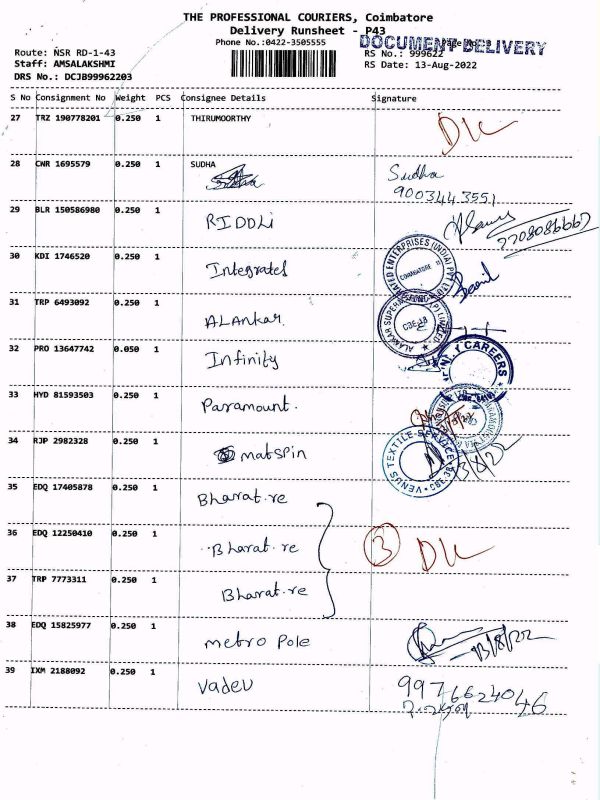 THE PROFESSIONAL COURIERS, Coimbatore
Delivery Runsheet - P43
Phone No.:0422-3505555
DOCUMENT DELIVERY
Route: NSR RD-1-43
RS No.: 999622
Staff: AMSALAKSHMI
RS Date: 13-Aug-2022
DRS No.: DCJB99962203
S No Consignment No Weight PCS Consignee Details Signature
27 TRZ 190778201 0.250 1 THIRUMOORTHY
28 CNR 1695579 0.250 1 SUDHA Sudha
9003443551
29 BLR 150586980 0.250 1 RIDDLi
30 KDI 1746520 0.250 1 Integrated
COIMBATORE
31 TRP 6493092 0.250 1 ALAnkar.
CBE-18
32 PRO 13647742 0.050 1 Infinity
CAREERS
33 HYD 81593503 0.250 1 Paramount.
34 RJP 2982328 0.250 1 matspin
VENUS TEXTILE-SERVICE
13/8/22
35 EDQ 17405878 0.250 1 Bharat.re
36 EDQ 12250410 0.250 1 Bharat.re 3
37 TRP 7773311 0.250 1 Bharat.re
38 EDQ 15825977 0.250 1 metro Pole 13/8/22
39 IXM 2188092 0.250 1 Vadeu 9976624046